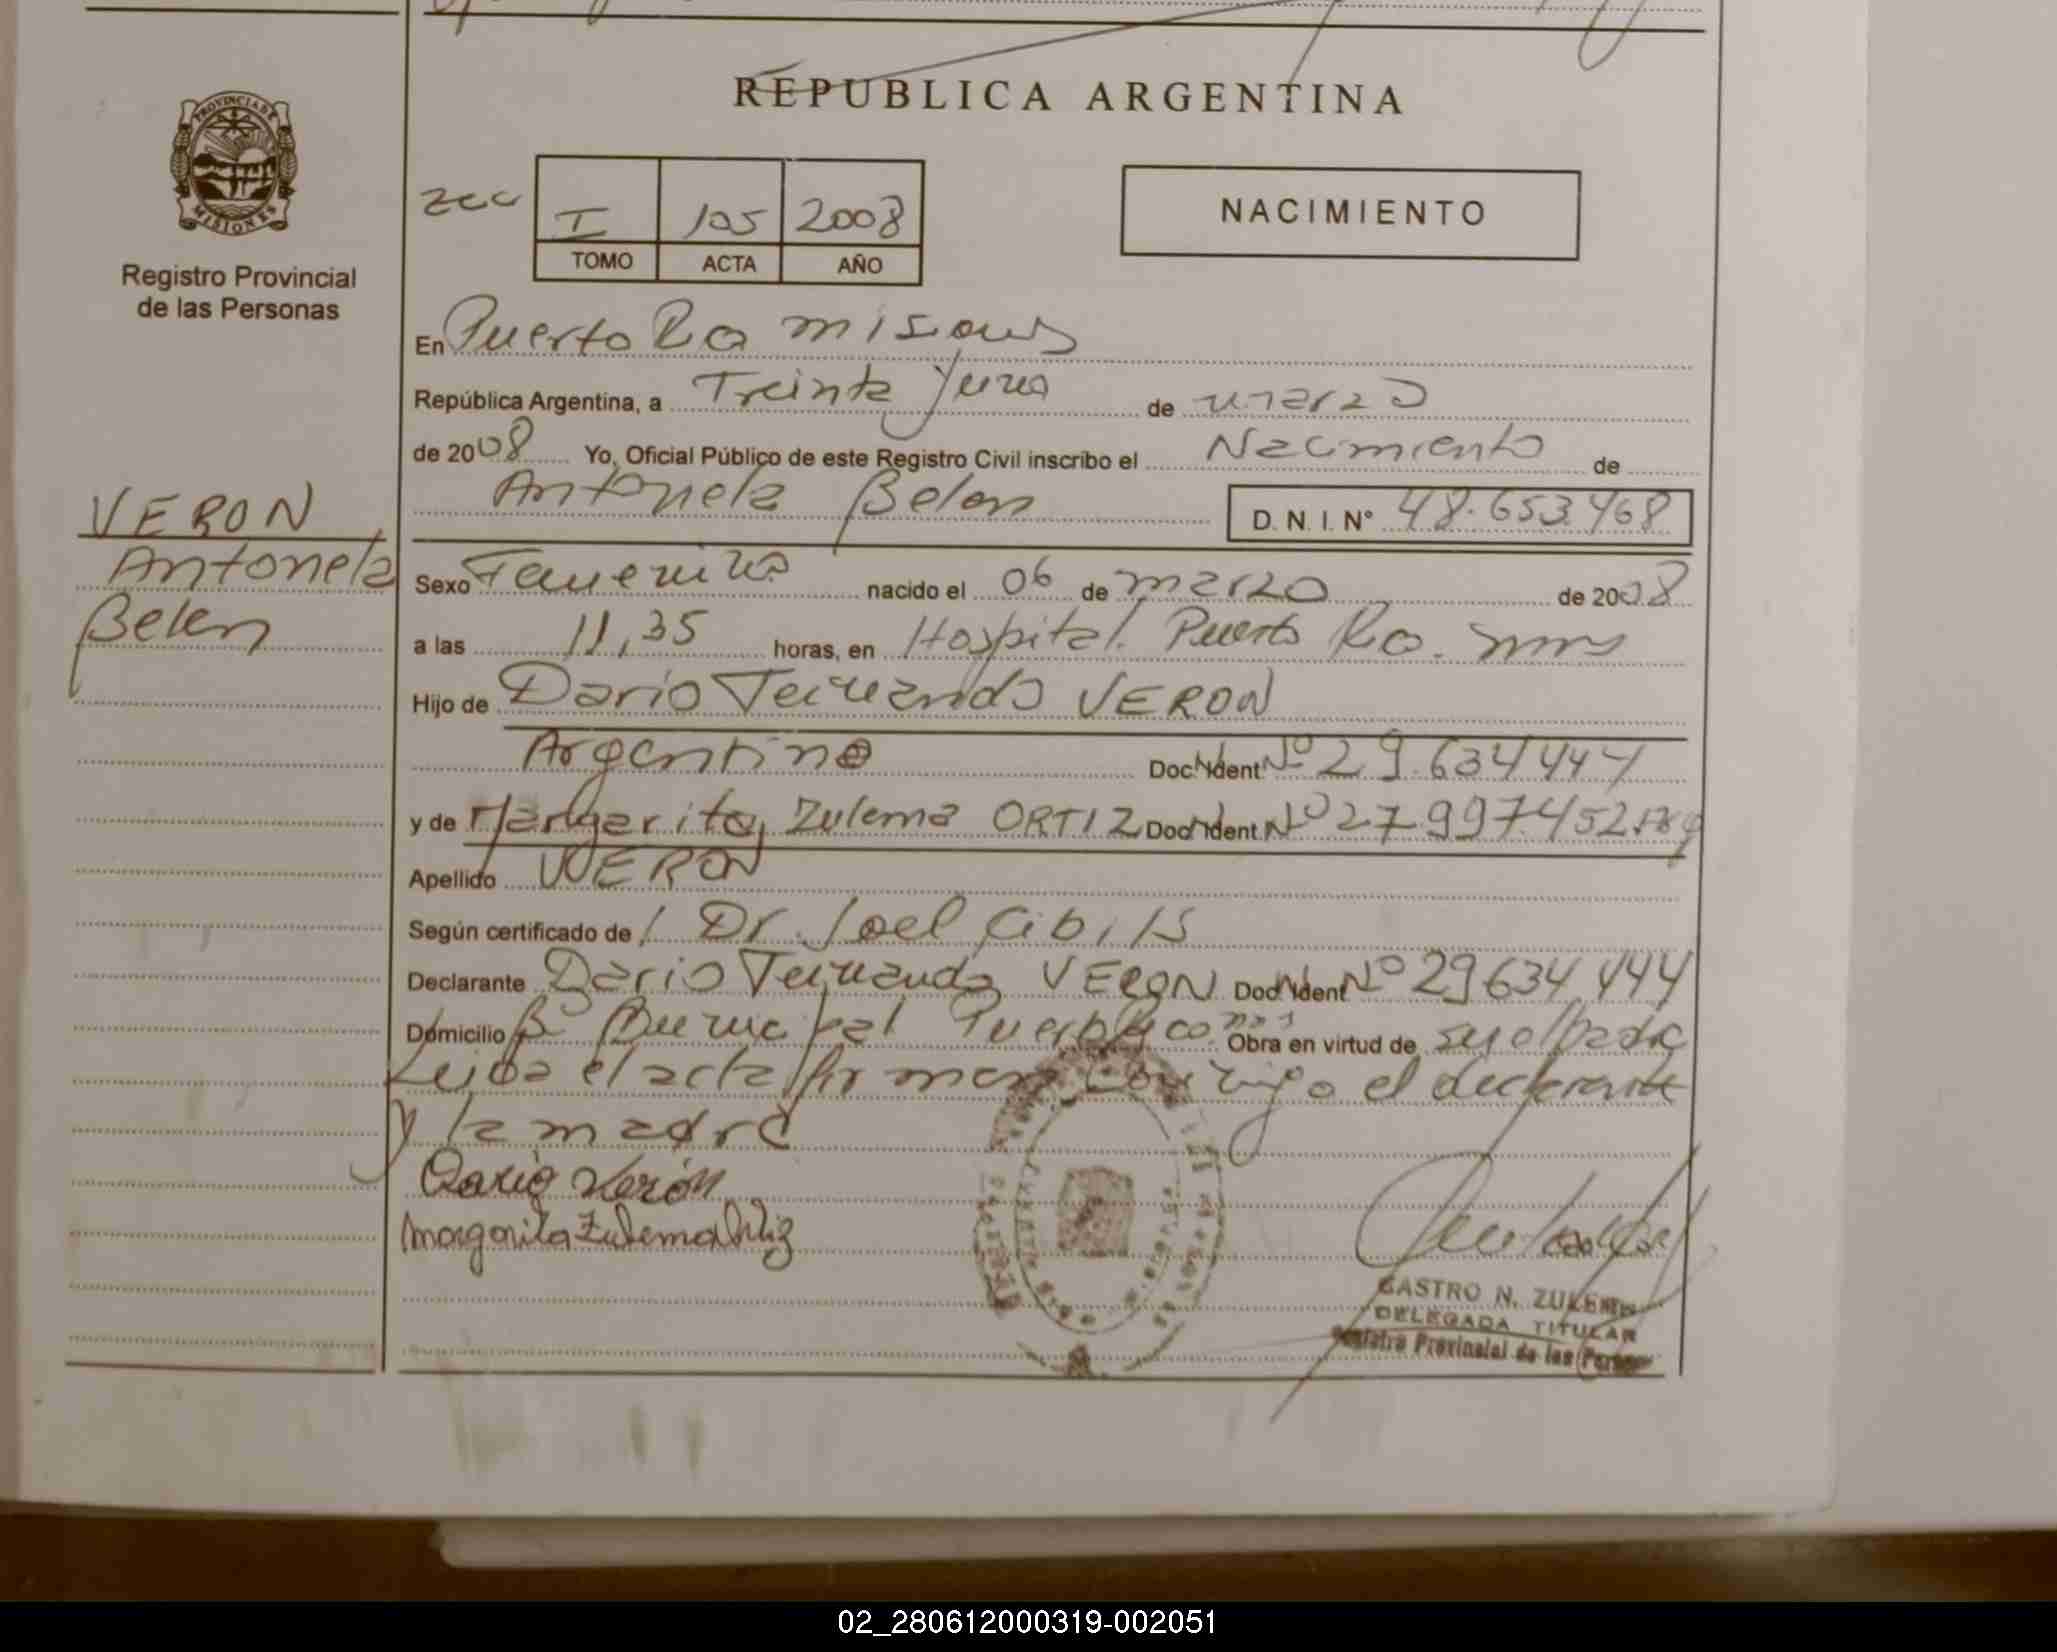 REPUBLICA ARGENTINA
PROVINCIA DE
MISIONES
Registro Provincial
de las Personas
I 105 2008
TOMO ACTA AÑO
NACIMIENTO
En Puerto Rico Misiones
República Argentina, a Treinta y uno de marzo
de 2008 Yo, Oficial Público de este Registro Civil inscribo el Nacimiento de
Antonela Belen D. N. I. Nº 48.653.468
VERON
Antonela
Belen
Sexo Femenino nacido el 06 de marzo de 2008
a las 11,35 horas, en Hospital. Puerto Rico.
Hijo de Dario Fernando VERON
Argentino Doc. Ident. Nº 29.634444
y de Margarita Zulema ORTIZ Doc. Ident. Nº 27997452
Apellido VERON
Según certificado de Dr. Joel Cibils
Declarante Dario Fernando VERON Doc. Ident. Nº 29634444
Domicilio Bº Municipal Puerto Rico Obra en virtud de ser el padre
Leida el acta firman conmigo el declarante
y la madre
Dario Verón
Margarita Zulema Ortiz
CASTRO N. ZULEMA
DELEGADA TITULAR
Registro Provincial de las Personas
02_280612000319-002051